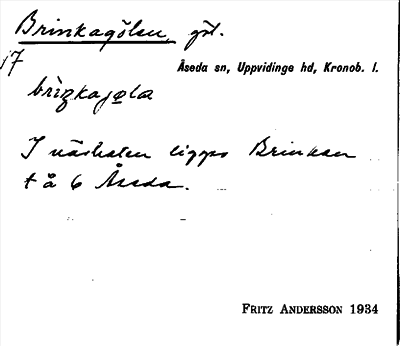 Brinkagölen, göl.
17
Åseda sn, Uppvidinge hd, Kronob. l.
I närheten ligger Brinken
t å 6 Åseda.
FRITZ ANDERSSON 1934